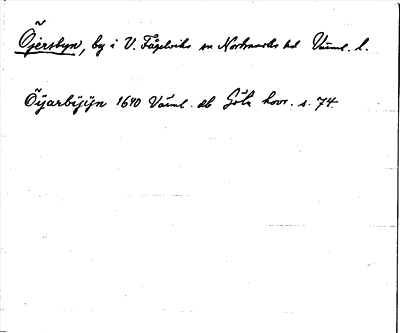 Öjersbyn, by i V. Fågelviks sn Nordmarks hd Värml. l.
Öÿarbÿÿn 1640 Värml. db Göta hovr. s. 74.